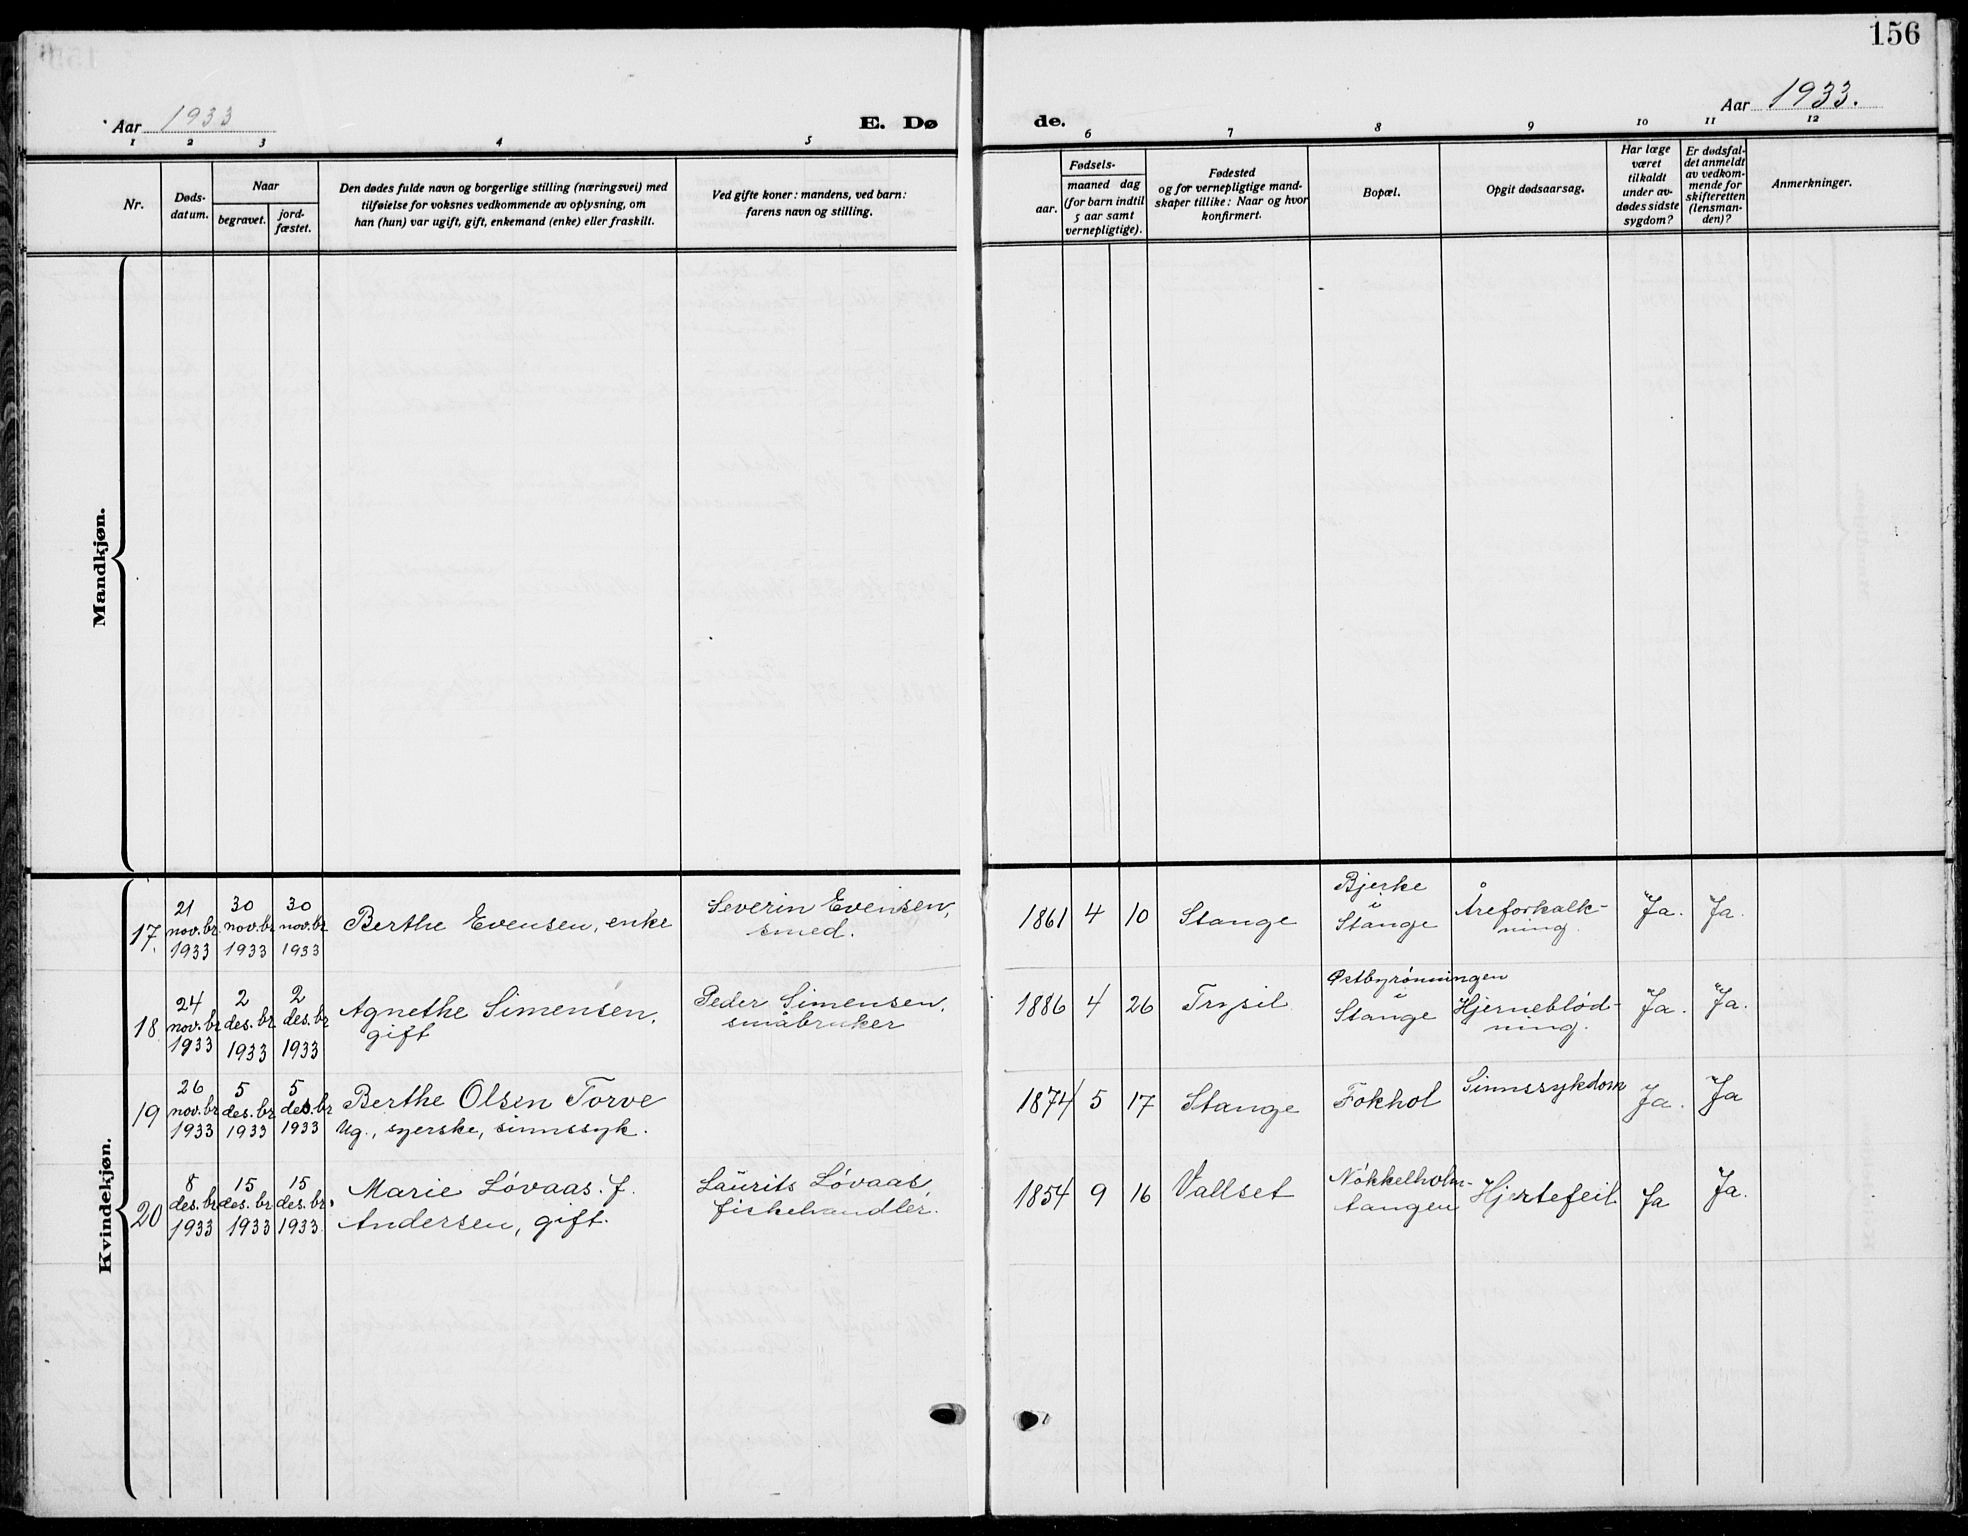 156
Aar 1933
E. Dø
de.
Aar 1933.
1 2 3 4 5 6 7 8 9 10 11 12
Nr.
Døds-
datum.
Naar
begravet.
jord-
fæstet.
Den dødes fulde navn og borgerlige stilling (næringsvei) med
tilføielse for voksnes vedkommende av oplysning, om
han (hun) var ugift, gift, enkemand (enke) eller fraskilt.
Ved gifte koner: mandens, ved barn:
farens navn og stilling.
Fødsels-
aar.
maaned dag
(for barn indtil
5 aar samt
vernepligtige).
Fødested
og for vernepligtige mand-
skaper tillike: Naar og hvor
konfirmert.
Bopæl.
Opgit dødsaarsag.
Har læge
været
tilkaldt
under av-
dødes sidste
sygdom?
Er dødsfal-
det anmeldt
av vedkom-
mende for
skifteretten
(lensman-
den)?
Anmerkninger.
Mandkjøn.
Kvindekjøn.
17.
21
nov.br.
1933
30
nov.br
1933
30
nov.br
1933
Berthe Evensen, enke
Severin Evensen,
smed.
1861 4 10
Stange
Bjerke
i
Stange
Åreforkalk-
ning.
Ja.
Ja.
18
24
nov.br
1933
2
des.br
1933
2
des.br
1933
Agnethe Simensen,
gift
Peder Simensen,
småbruker
1886 4 26
Trysil
Østbyrönningen
i
Stange
Hjerneblød-
ning.
Ja.
Ja.
19
26
nov.br
1933
5
des.br
1933
5
des.br
1933
Berthe Olsen Torve
Ug., syerske, sinnssyk.
1874 5 17
Stange
Fokhol
Sinnssykdom
Ja.
Ja
20
8
des.br
1933
15
des.br
1933
15
des.br.
1933
Marie Lóvaas. f.
Andersen, gift.
Laurits Lóvaas,
fiskehandler.
1854 9 16
Vallset
Nökkelholm-
tangen
Hjertefeil
Ja
Ja.